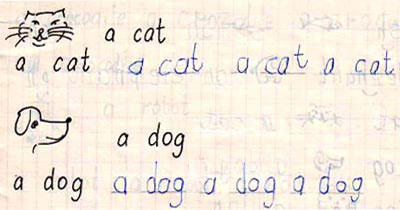 a cat
a cat a cat a cat a cat
a dog
a dog a dog a dog a dog